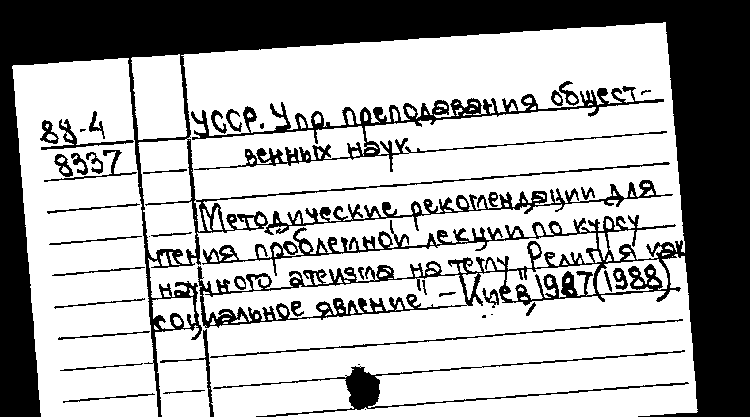 88-4
8337
УССР. Упр. преподавания общест-
венных наук.
Методические рекомендации для
чтения проблемной лекции по курсу
научного атеизма на тему „Религия как
социальное явление". - Киев, 1987 (1988).